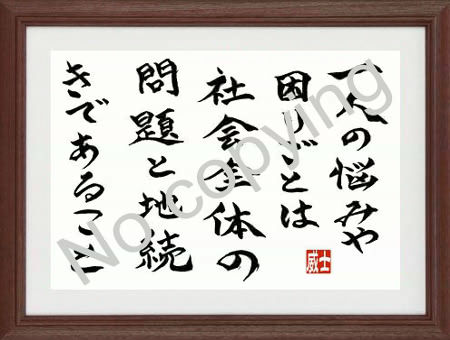 一人の悩みや
困りごとは
社会全体の
問題と地続
きであること
威士
No copying